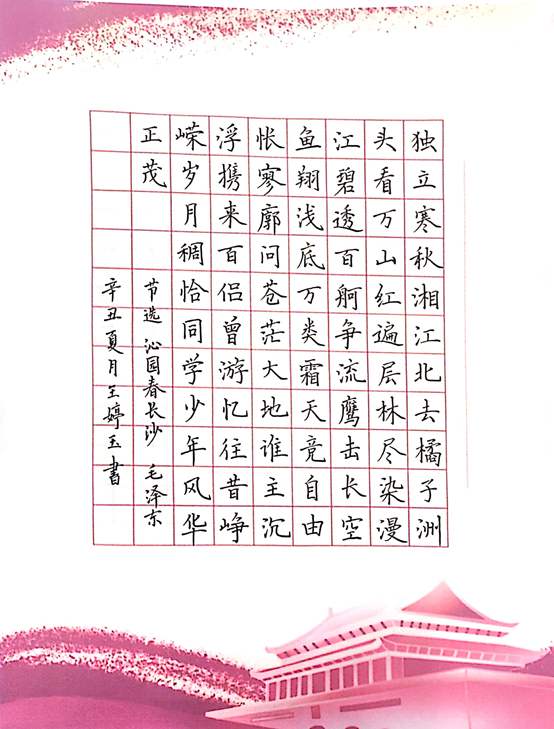 独立寒秋湘江北去橘子洲
头看万山红遍层林尽染漫
江碧透百舸争流鹰击长空
鱼翔浅底万类霜天竞自由
怅寥廓问苍茫大地谁主沉
浮携来百侣曾游忆往昔峥
嵘岁月稠恰同学少年风华
正茂
节选沁园春长沙 毛泽东
辛丑夏月王婷玉書